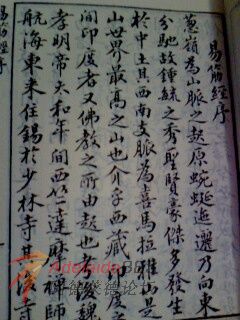 易筋經序
蔥嶺為山脈之起原蜿蜒邐乃向東
分馳故鍾毓之秀聖賢豪傑多發生
於中土其西南支脈為喜馬拉雅山是
山世界最高之山也介乎西藏度之
間印度者又佛教之所由起也考後魏
孝明帝太和年間西達摩禪師
航海東來住錫於少林寺其
易筋經序
AdelaideBBS
德莱德论